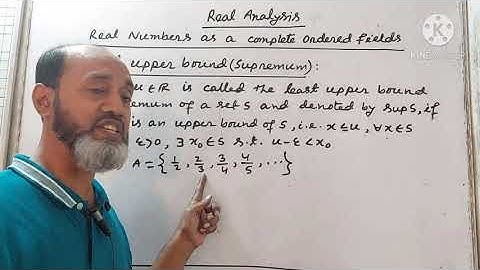 Real Analysis
Real Numbers as a complete ordered fields
upper bound (Supremum) :
u∈R is called the least upper bound
of a set S and denoted by sup S, if
is an upper bound of S, i.e. x≤u, ∀x∈S
ε>0, ∃ x₀∈S s.t. u-ε<x₀
A = {1/2, 2/3, 3/4, 4/5, ...}